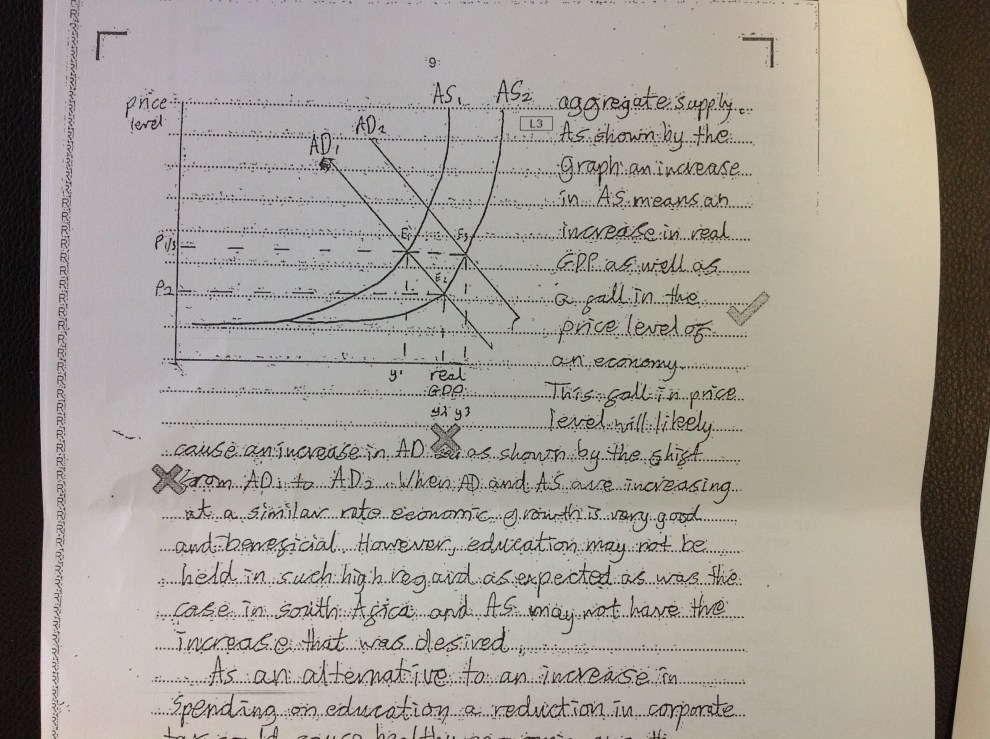 9
price level
AS1
AS2
AD1
AD2
L3
P1/3
P2
E1
E3
E2
y1
real GDP
y2 y3
aggregate supply.
As shown by the
graph an increase
in AS means an
increase in real
GDP as well as
a fall in the
price level of
an economy.
This fall in price
level will likely
cause an increase in AD as shown by the shift
from AD1 to AD2. When AD and AS are increasing
at a similar rate economic growth is very good
and beneficial. However, education may not be
held in such high regard as expected as was the
case in south Africa and AS may not have the
increase that was desired.
As an alternative to an increase in
spending on education a reduction in corporate